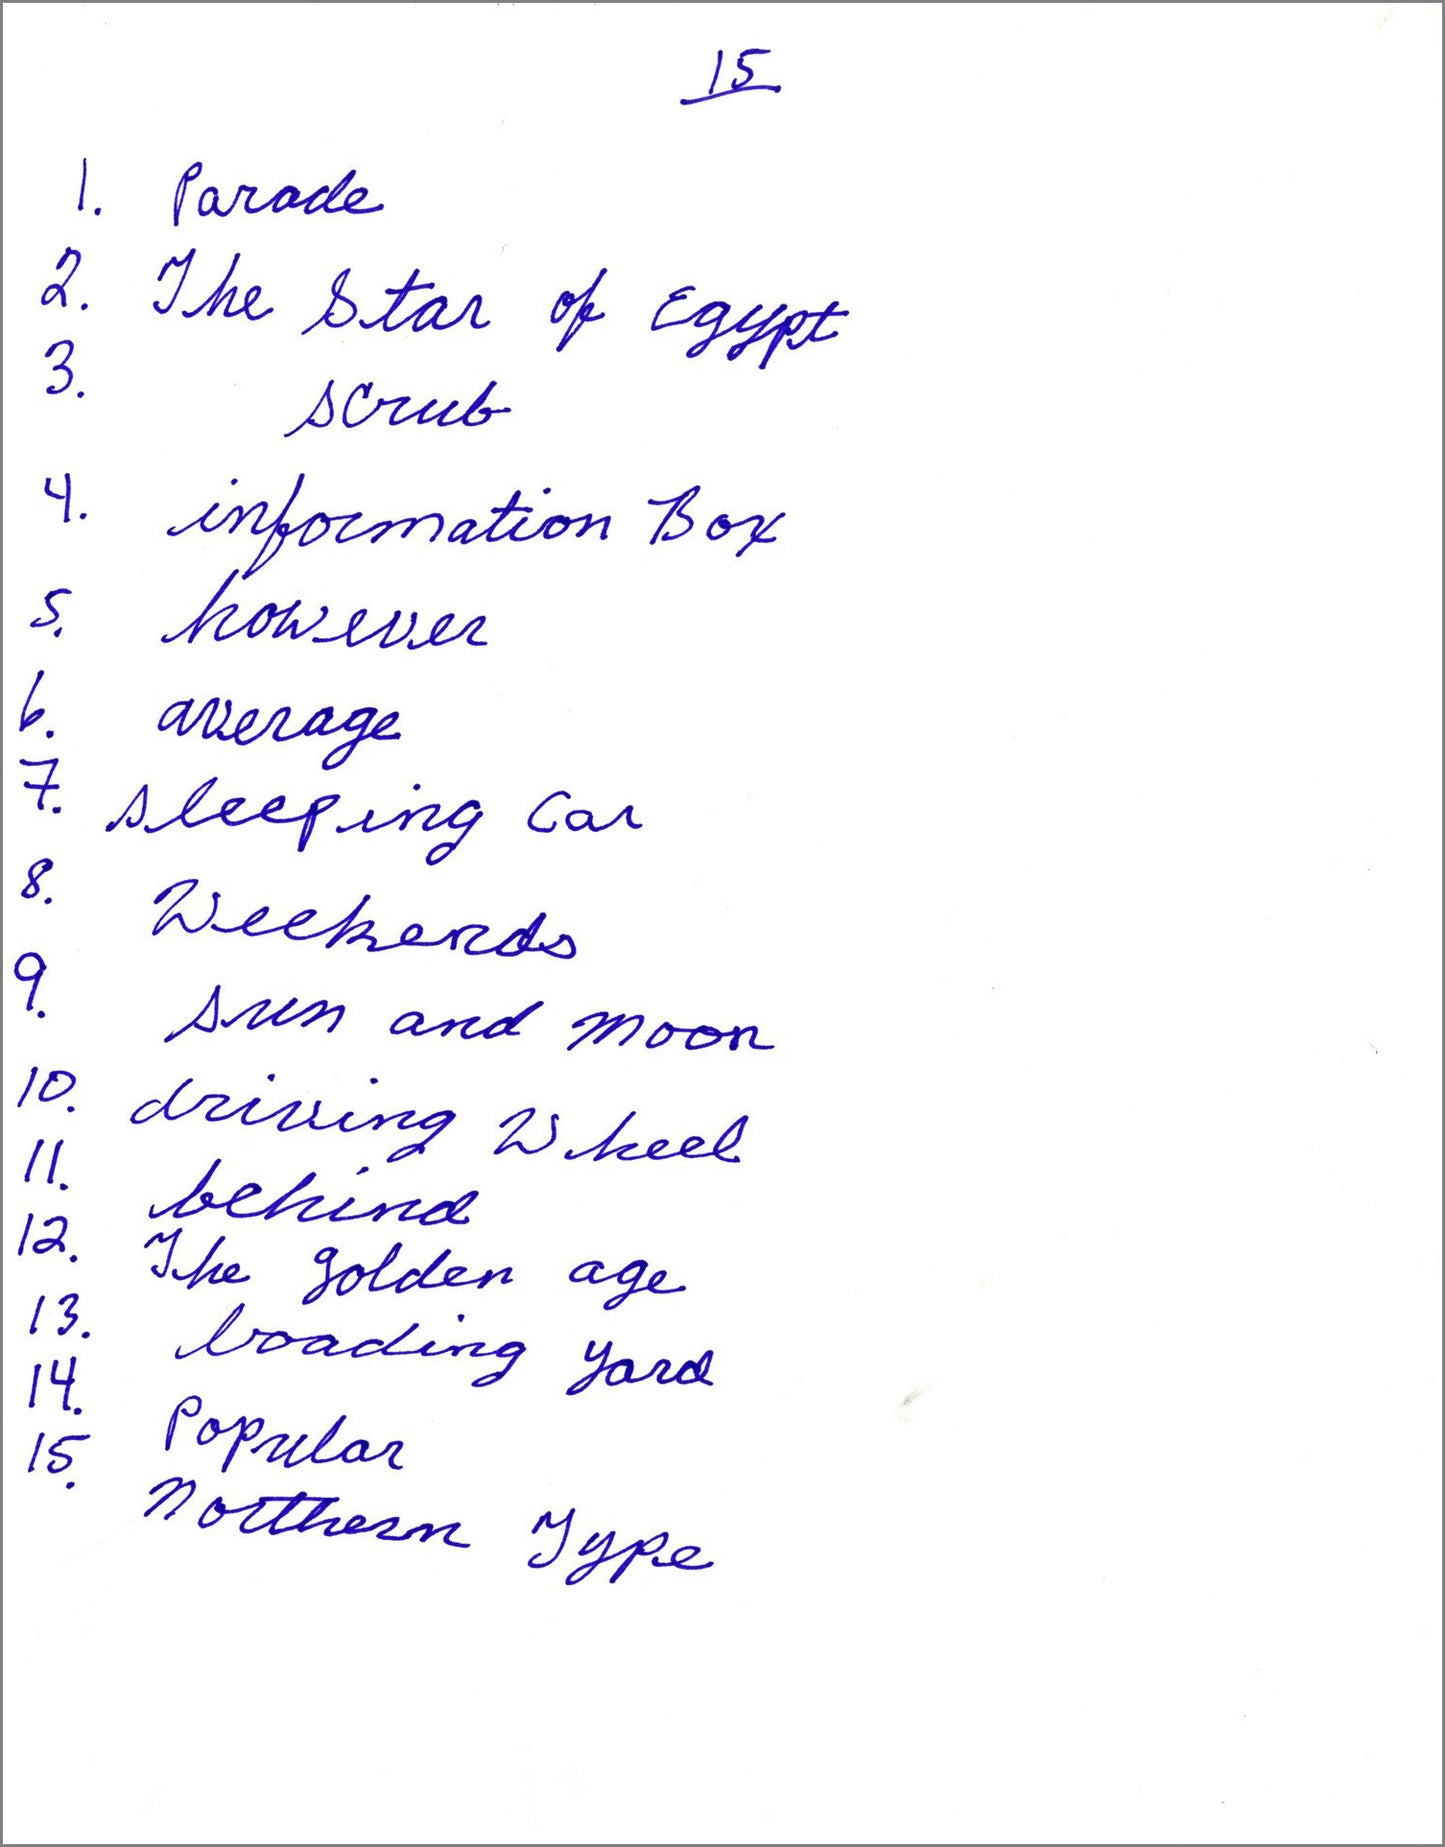 15
1. Parade
2. The Star of Egypt
3. scrub
4. information Box
5. however
6. average
7. sleeping Car
8. Weekends
9. sun and moon
10. driving Wheel
11. behind
12. The golden age
13. loading yard
14. Popular
15. Northern Type